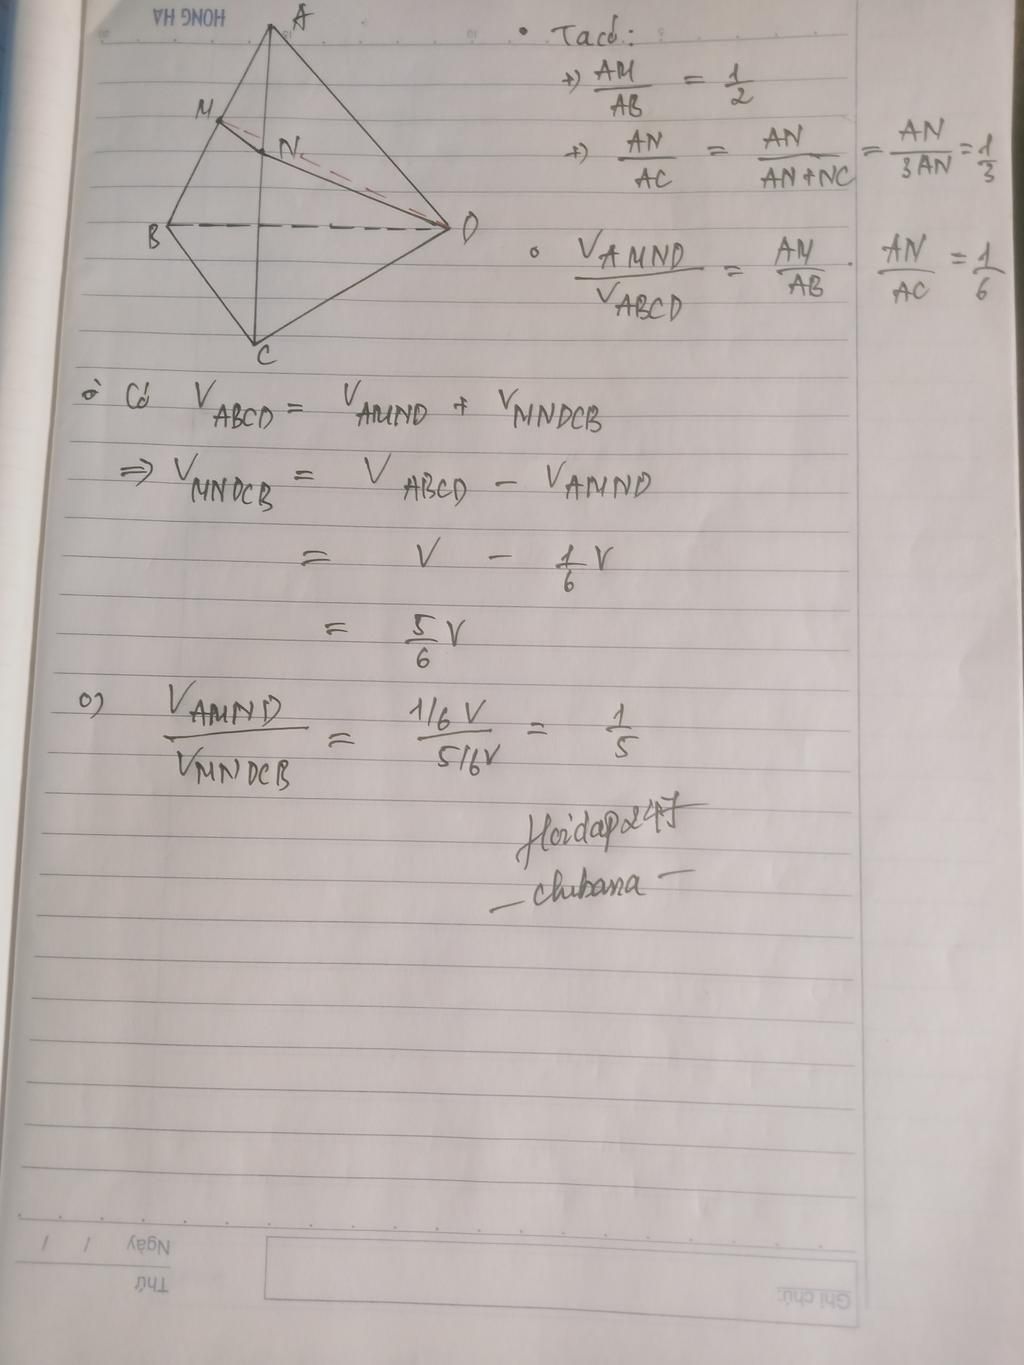 HONG HA
A
M
N
B
D
C
• Ta có:
+) AM/AB = 1/2
+) AN/AC = AN/AN+NC = AN/3AN = 1/3
• V_AMND/V_ABCD = AM/AB . AN/AC = 1/6
Có V_ABCD = V_AMND + V_MNDCB
=> V_MNDCB = V_ABCD - V_AMND
= V - 1/6 V
= 5/6 V
o) V_AMND/V_MNDCB = 1/6 V/5/6V = 1/5
Hoidap247
- chubana -
Ngày / /
Thứ
Ghi chú: